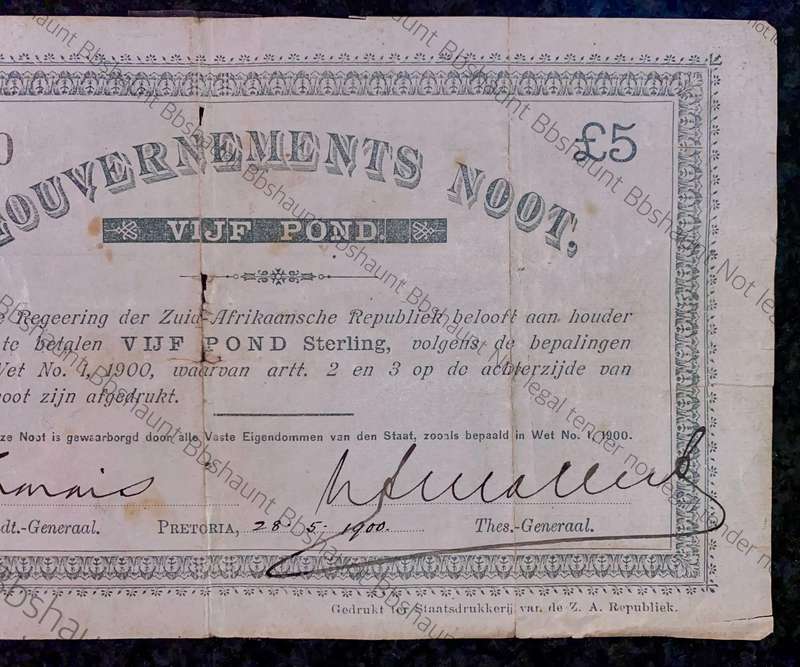 0
£5
GOUVERNEMENTS NOOT,
VIJF POND.
e Regeering der Zuid-Afrikaansche Republiek belooft aan houder
te betalen VIJF POND Sterling, volgens de bepalingen
Wet No. 1, 1900, waarvan artt. 2 en 3 op de achterzijde van
oot zijn afgedrukt.
ze Noot is gewaarborgd door alle Vaste Eigendommen van den Staat, zooals bepaald in Wet No. 1, 1900.
dt.-Generaal. PRETORIA, 28-5-1900. Thes.-Generaal.
Gedrukt ter Staatsdrukkerij van de Z. A. Republiek.
Bbshaunt Bbshaunt Bbshaunt Bbshaunt Not legal tender